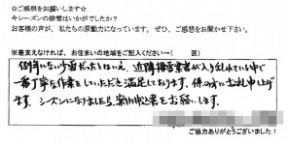 ☆ご感想をお願いします☆
今シーズンの排雪はいかがでしたか？
お客様の声が、私たちの原動力になっています。ぜひ、ご感想をお聞かせ下さい。
※差支えなければ、お住まいの地域をご記入ください→（　　　　区）
例年にない少雪だったとはいえ、近隣排雪業者が入り乱れている中で
一番丁寧な作業をしていただき満足しております。様の方に御礼申し上げ
ます。シーズンになりましたら、案内申込書をお願いします。
ご協力ありがとうございました！